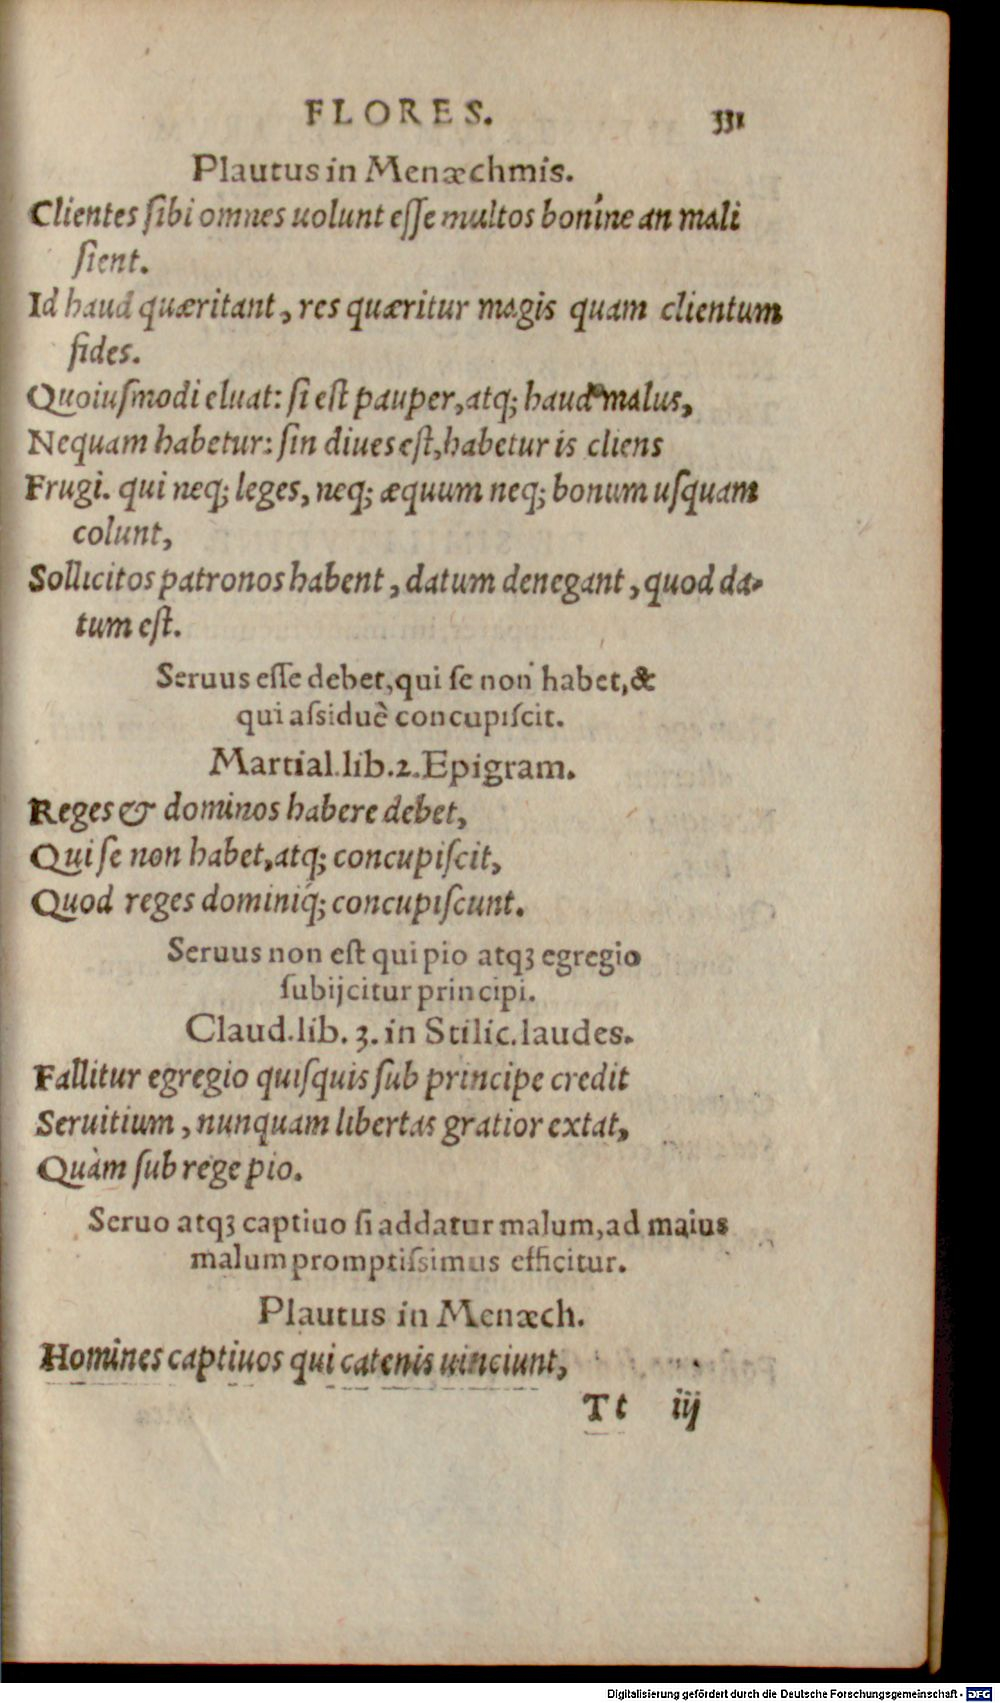 FLORES. 331
Plautus in Menæchmis.
Clientes ſibi omnes uolunt eſſe multos boníne an mali
ſient.
Id haud quæritant, res quæritur magis quam clientum
fides.
Quoiuſmodi eluat: ſi eſt pauper, atq; haud malus,
Nequam habetur: ſin diues eſt, habetur is cliens
Frugi. qui neq; leges, neq; æquum neq; bonum uſquam
colunt,
Sollicitos patronos habent, datum denegant, quod da-
tum eſt.
Seruus eſſe debet, qui ſe non habet, &
qui aſsiduè concupiſcit.
Martial.lib.2.Epigram.
Reges & dominos habere debet,
Qui ſe non habet, atq; concupiſcit,
Quod reges dominiq́; concupiſcunt.
Seruus non eſt qui pio atqꝫ egregio
ſubijcitur principi.
Claud.lib. 3. in Stilic. laudes.
Fallitur egregio quiſquis ſub principe credit
Seruitium, nunquam libertas gratior extat,
Quàm ſub rege pio.
Seruo atqꝫ captiuo ſi addatur malum, ad maius
malum promptiſsimus efficitur.
Plautus in Menæch.
Homines captiuos qui catenis uinciunt,
Tt iij
Digitalisierung gefördert durch die Deutsche Forschungsgemeinschaft - DFG